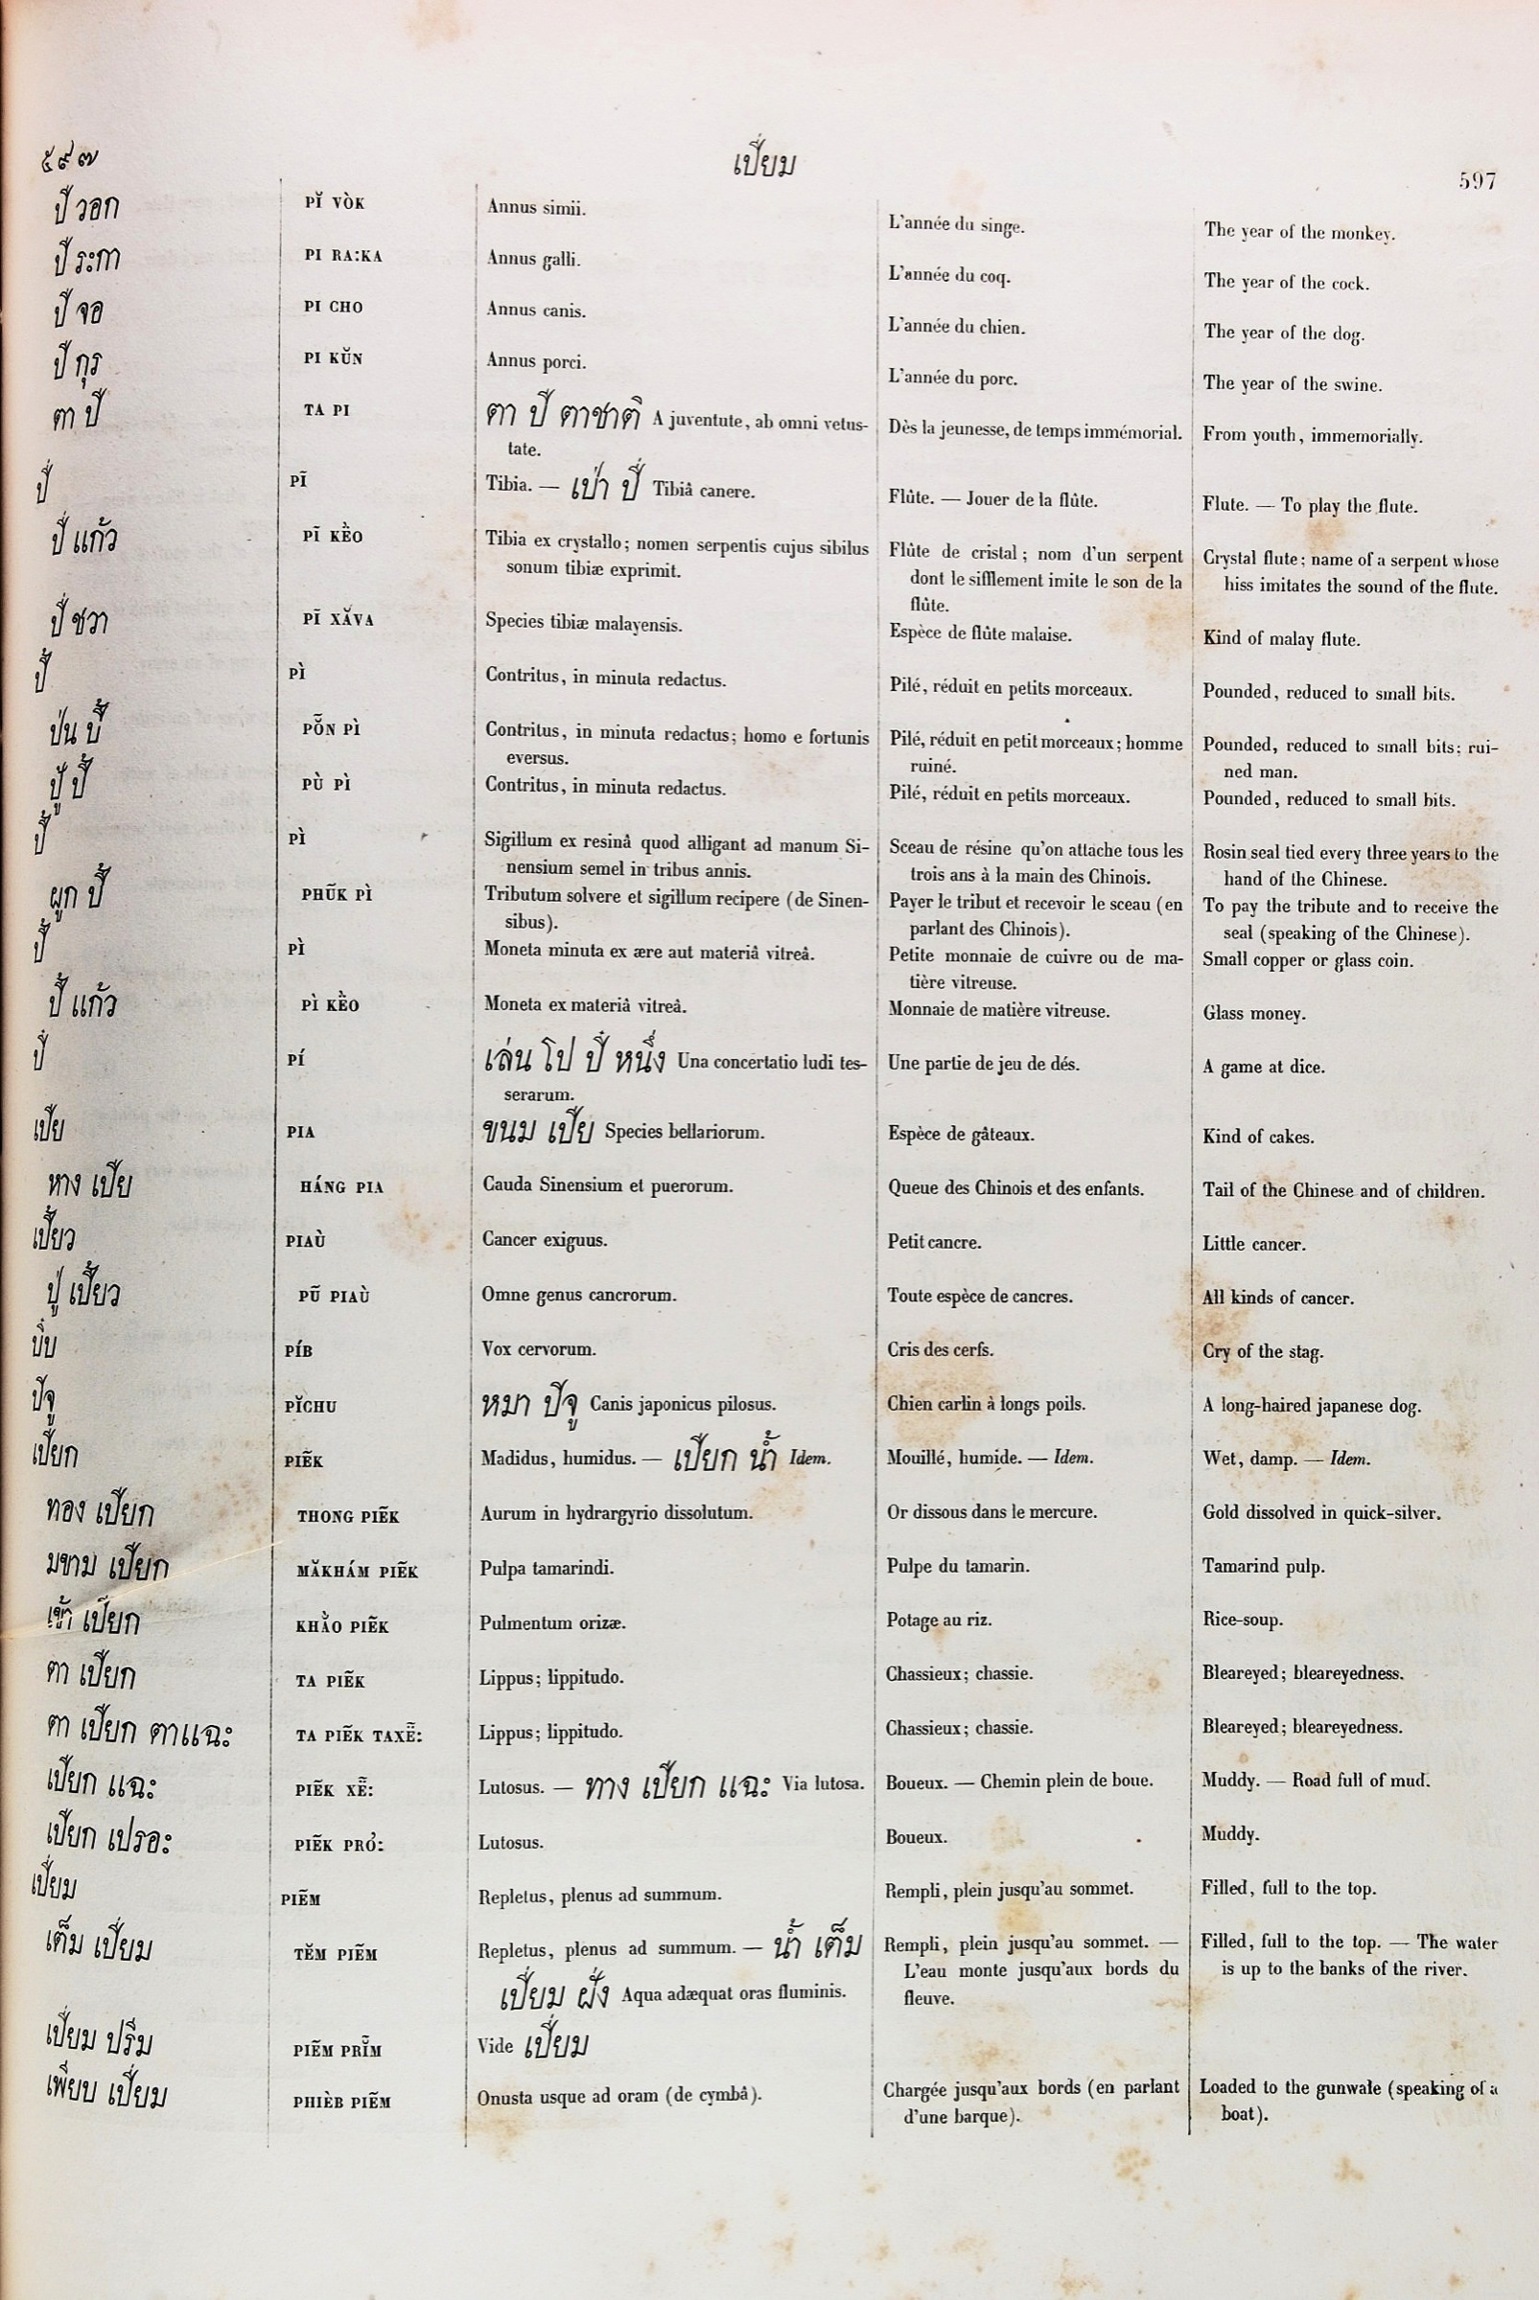 ๕๙๗ เปี่ยม 597
ปีวอก PĬ VÒK Annus simii. L'année du singe. The year of the monkey.
ปีระกา PI RA:KA Annus galli. L'année du coq. The year of the cock.
ปีจอ PI CHO Annus canis. L'année du chien. The year of the dog.
ปีกุร PI KŬN Annus porci. L'année du porc. The year of the swine.
ตา ปี TA PI ตา ปี ตาชาติ A juventute, ab omni vetus- Dès la jeunesse, de temps immémorial. From youth, immemorially.
tate.
ปี่ PĨ Tibia. — เป่า ปี่ Tibiâ canere. Flûte. — Jouer de la flûte. Flute. — To play the flute.
ปี่ แก้ว PĨ KẼO Tibia ex crystallo; nomen serpentis cujus sibilus Flûte de cristal; nom d'un serpent Crystal flute; name of a serpent whose
sonum tibiæ exprimit. dont le sifflement imite le son de la hiss imitates the sound of the flute.
flûte.
ปี่ ชวา PĨ XĂVA Species tibiæ malayensis. Espèce de flûte malaise. Kind of malay flute.
ปี้ PÌ Contritus, in minuta redactus. Pilé, réduit en petits morceaux. Pounded, reduced to small bits.
ป่น ปี้ PŎ̃N PÌ Contritus, in minuta redactus; homo e fortunis Pilé, réduit en petit morceaux; homme Pounded, reduced to small bits; rui-
eversus. ruiné. ned man.
ปู้ ปี้ PÙ PÌ Contritus, in minuta redactus. Pilé, réduit en petits morceaux. Pounded, reduced to small bits.
ปี้ PÌ Sigillum ex resinâ quod alligant ad manum Si- Sceau de résine qu'on attache tous les Rosin seal tied every three years to the
nensium semel in tribus annis. trois ans à la main des Chinois. hand of the Chinese.
ผูก ปี้ PHŨK PÌ Tributum solvere et sigillum recipere (de Sinen- Payer le tribut et recevoir le sceau (en To pay the tribute and to receive the
sibus). parlant des Chinois). seal (speaking of the Chinese).
ปี้ PÌ Moneta minuta ex ære aut materiâ vitreâ. Petite monnaie de cuivre ou de ma- Small copper or glass coin.
tière vitreuse.
ปี้ แก้ว PÌ KẼO Moneta ex materiâ vitreâ. Monnaie de matière vitreuse. Glass money.
ปี๋ PÍ เล่น โป ปี๋ หนึ่ง Una concertatio ludi tes- Une partie de jeu de dés. A game at dice.
serarum.
เปีย PIA ขนม เปีย Species bellariorum. Espèce de gâteaux. Kind of cakes.
หาง เปีย HÁNG PIA Cauda Sinensium et puerorum. Queue des Chinois et des enfants. Tail of the Chinese and of children.
เปี้ยว PIAÙ Cancer exiguus. Petit cancre. Little cancer.
ปู่ เปี้ยว PŨ PIAÙ Omne genus cancrorum. Toute espèce de cancres. All kinds of cancer.
ปิ๋บ PÍB Vox cervorum. Cris des cerfs. Cry of the stag.
ปีจู PĬCHU หมา ปีจู Canis japonicus pilosus. Chien carlin à longs poils. A long-haired japanese dog.
เปียก PIẼK Madidus, humidus. — เปียก น้ำ Idem. Mouillé, humide. — Idem. Wet, damp. — Idem.
ทอง เปียก THONG PIẼK Aurum in hydrargyrio dissolutum. Or dissous dans le mercure. Gold dissolved in quick-silver.
มขาม เปียก MĂKHÁM PIẼK Pulpa tamarindi. Pulpe du tamarin. Tamarind pulp.
เข้า เปียก KHẢO PIẼK Pulmentum orizæ. Potage au riz. Rice-soup.
ตา เปียก TA PIẼK Lippus; lippitudo. Chassieux; chassie. Bleareyed; bleareyedness.
ตา เปียก ตาแฉะ TA PIẼK TAXẼ: Lippus; lippitudo. Chassieux; chassie. Bleareyed; bleareyedness.
เปียก แฉะ PIẼK XẼ: Lutosus. — ทาง เปียก แฉะ Via lutosa. Boueux. — Chemin plein de boue. Muddy. — Road full of mud.
เปียก เปรอะ PIẼK PRỎ: Lutosus. Boueux. Muddy.
เปี่ยม PIẼM Repletus, plenus ad summum. Rempli, plein jusqu'au sommet. Filled, full to the top.
เต็ม เปี่ยม TĔM PIẼM Repletus, plenus ad summum. — น้ำ เต็ม Rempli, plein jusqu'au sommet. — Filled, full to the top. — The water
เปี่ยม ฝั่ง Aqua adæquat oras fluminis. L'eau monte jusqu'aux bords du is up to the banks of the river.
fleuve.
เปี่ยม ปรีม PIẼM PRĨM Vide เปี่ยม
เพียบ เปี่ยม PHIÈB PIẼM Onusta usque ad oram (de cymbâ). Chargée jusqu'aux bords (en parlant Loaded to the gunwale (speaking of a
d'une barque). boat).